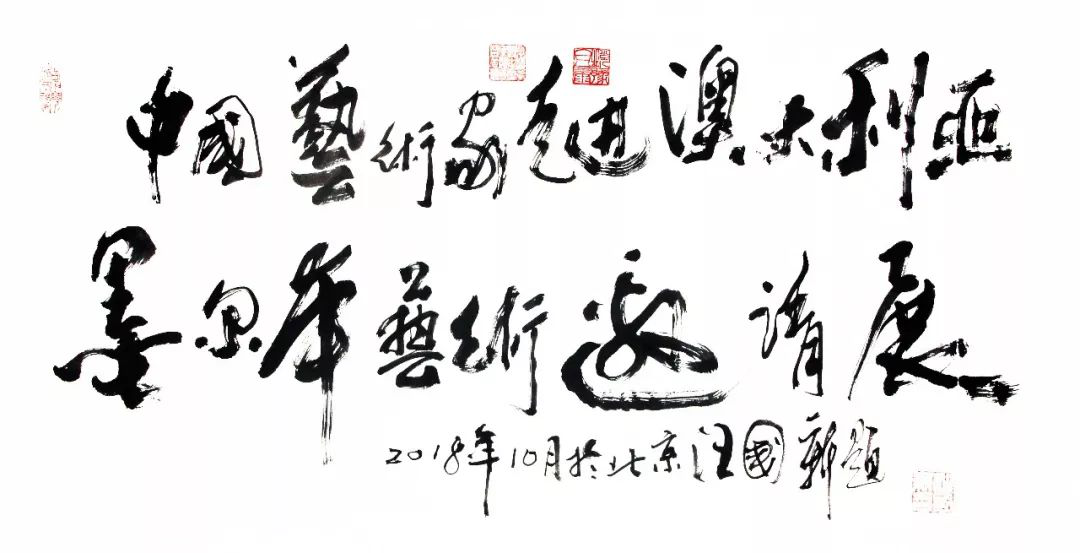 中國藝術家走進澳大利亞
墨尔本藝術邀請展
2018年10月於北京汪國新題